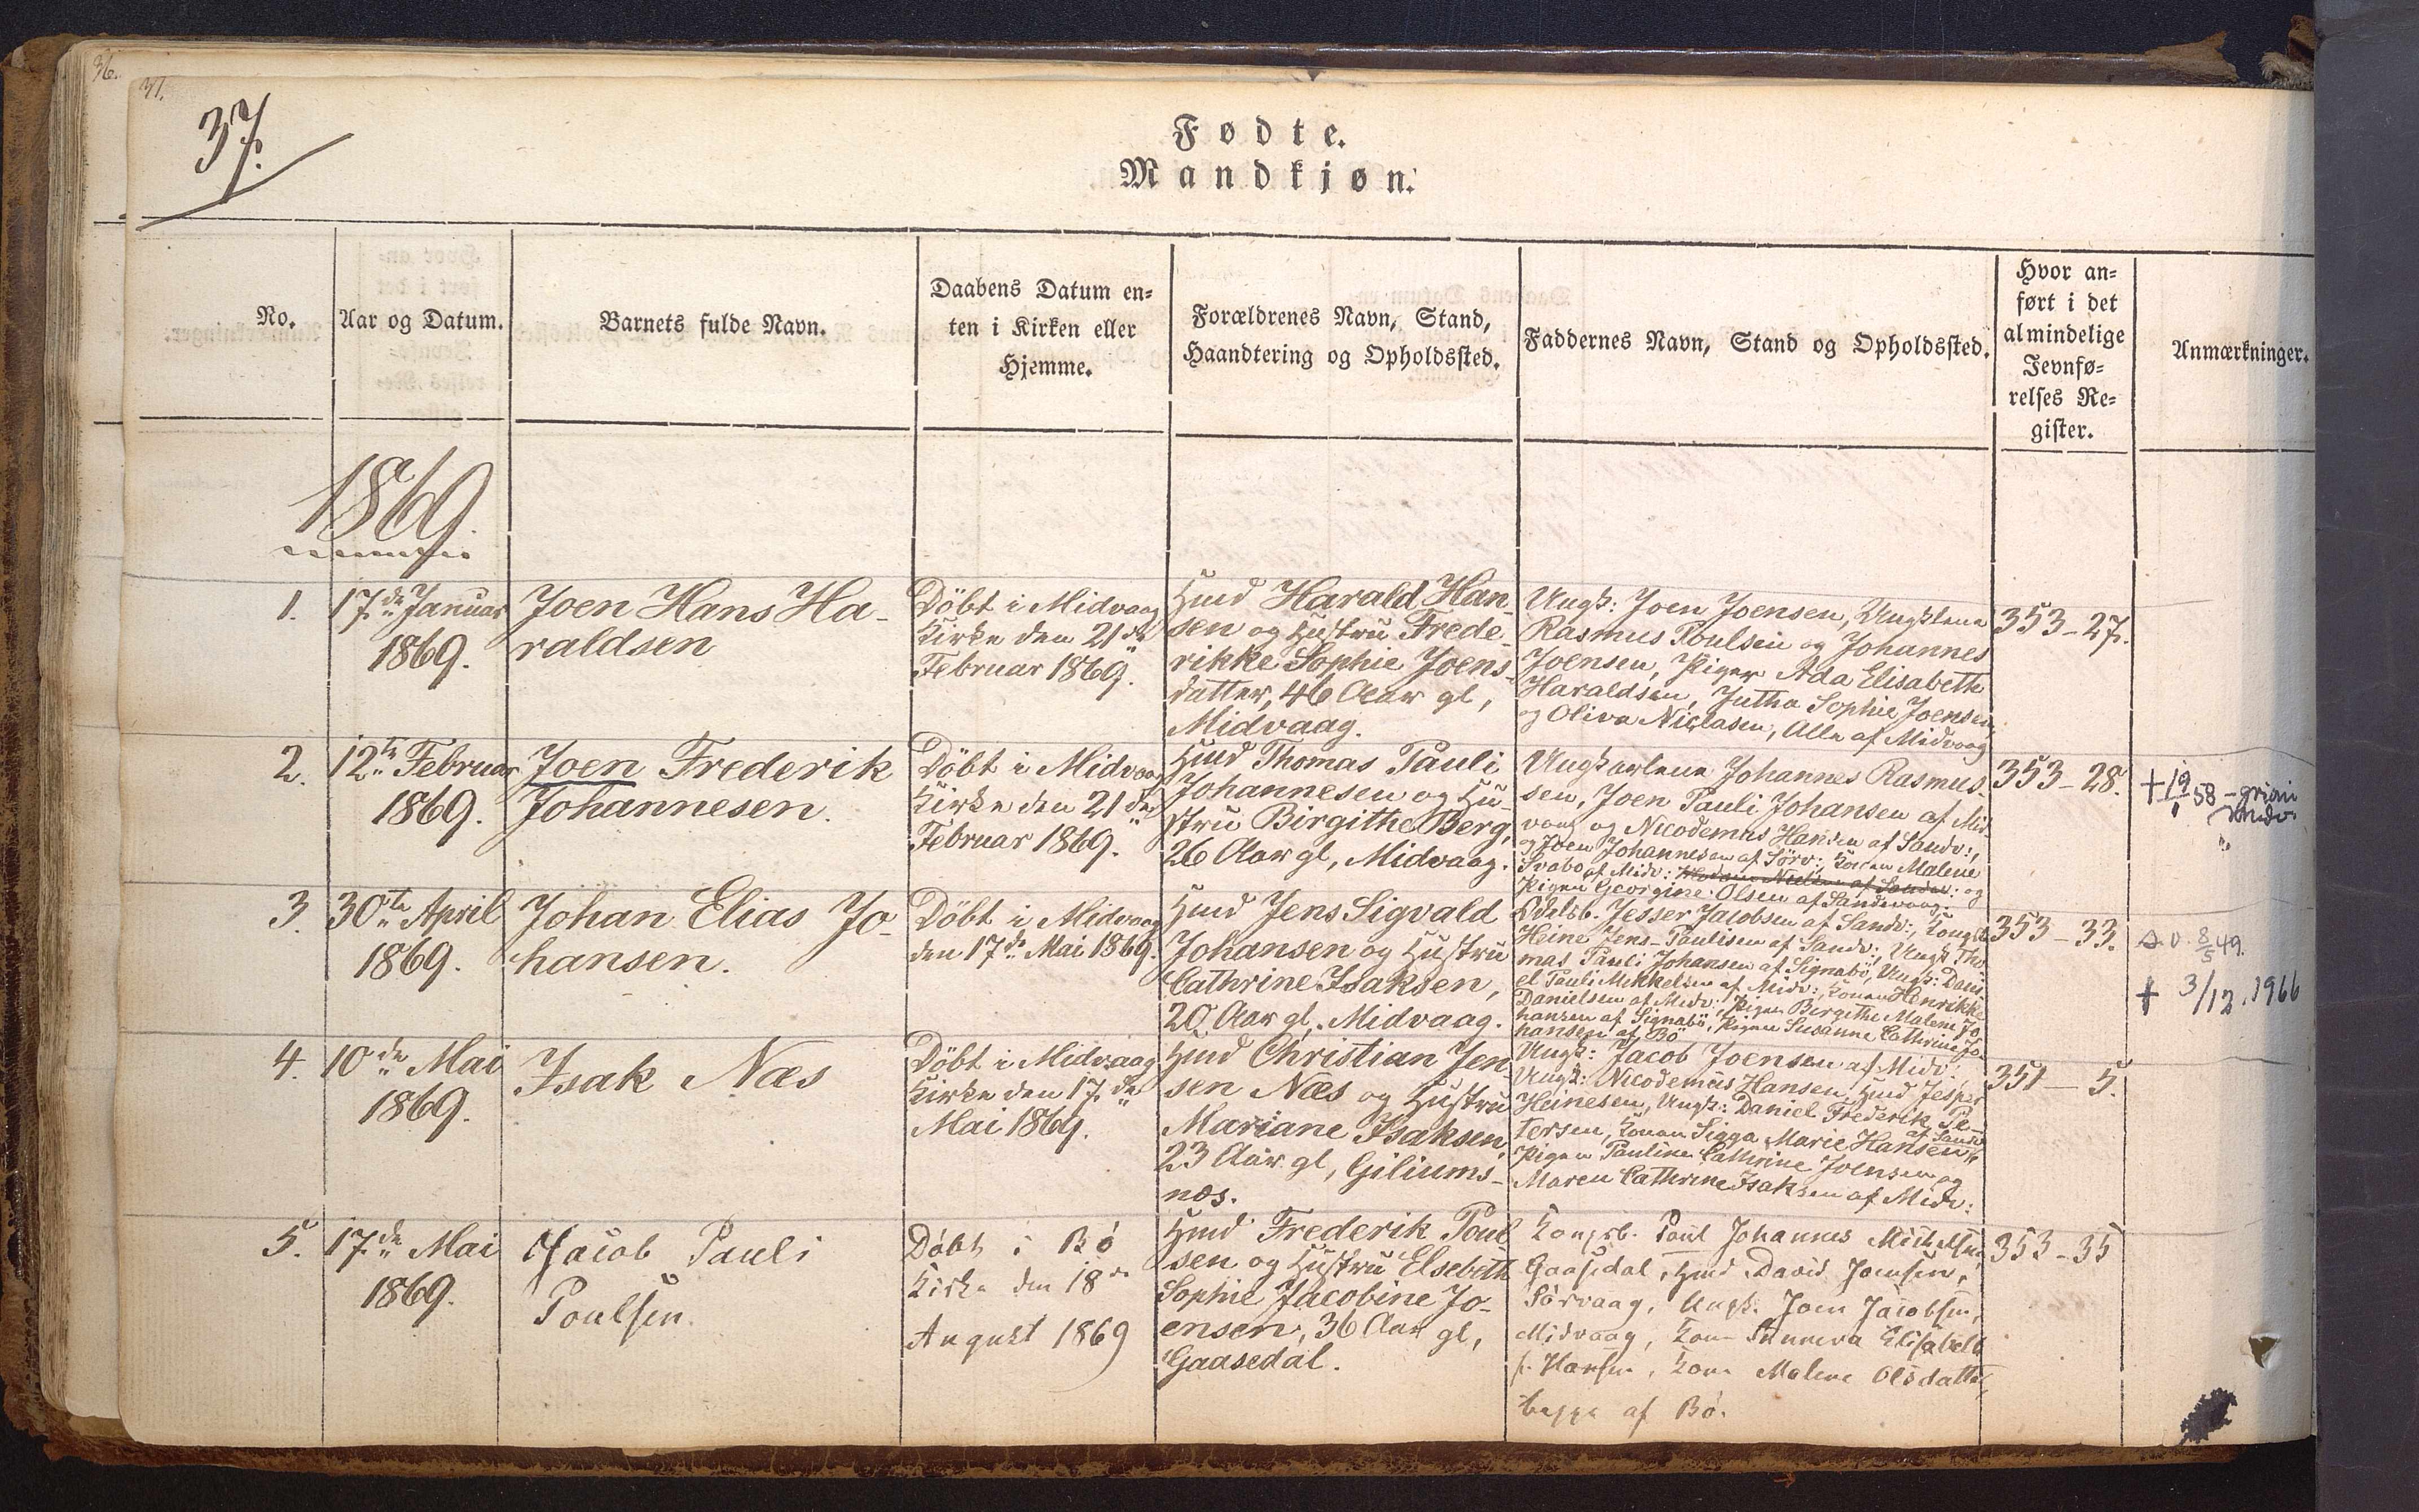 36.
37.
37.
Fødte.
Mandkjøn.
No.
Aar og Datum.
Barnets fulde Navn.
Daabens Datum en=
ten i Kirken eller
Hjemme.
Forældrenes Navn, Stand,
Haandtering og Opholdssted.
Faddernes Navn, Stand og Opholdssted.
Hvor an=
ført i det
almindelige
Jevnfø=
relses Re=
gister.
Anmærkninger.
1869.
1.
17de Januar
1869.
Joen Hans Ha-
raldsen
Döbt i Midvaag
Kirke den 21de
Februar 1869.
Hmd Harald Han-
sen og Hustru Frede-
rikke Sophie Joens-
datter, 46 Aar gl,
Midvaag.
Ungk: Joen Joensen, Ungklene
Rasmus Poulsen og Johannes
Joensen, Piger Ada Elisabeth
Haraldsen, Jutha Sophie Joensen
og Oliva Niclasen, Alle af Midvaag
353-27.
2.
12te Februar
1869.
Joen Frederik
Johannesen.
Döbt i Midvaag
Kirke den 21de
Februar 1869.
Hmd Thomas Pauli
Johannesen og Hu-
stru Birgithe Berg,
26 Aar gl, Midvaag.
Ungkarlene Johannes Rasmus-
sen, Joen Pauli Johansen af Mid-
vaag og Nicodemus Hansen af Sandv:,
og Joen Johannesen af Sörv:, Konen Malene
Svabo af Midv: af Sandv: og
Pigen Georgine Olsen af Sandevaag.
353-28.
+ 19/1 58
3.
30te April
1869.
Johan Elias Jo-
hansen.
Döbt i Midvaag
den 17de Mai 1869.
Hmd Jens Sigvald
Johansen og Hustru
Cathrine Isaksen,
20 Aar gl. Midvaag.
Odelsb. Jesser Jacobsen af Sandv:, Kongsb
Heine Jens-Paulisen af Sandv:, Ungk Tho
mas Pauli Johansen af Signabö, Ungk: Dani
el Pauli Mikkelsen af Midv:, Konen Henrikke
Danielsen af Midv:, Pigen Birgithe Malene Jo
hansen af Signabö, Pigen Susanne Cathrine Jo-
hansen af Bö
353-33.
s.v. 8/5 49.
+ 3/12.1966
4.
10de Mai
1869.
Isak Næs
Döbt i Midvaag
Kirke den 17de
Mai 1869.
Hmd Christian Jen
sen Næs og Hustru
Mariane Isaksen,
23 Aar gl, Giliums-
næs.
Ungk: Jacob Joensen af Midv:,
Ungk: Nicodemus Hansen, Hmd Jesper
Heinesen, Ungk: Daniel Frederik Pe-
tersen, Konen Sigga Marie Hansen af Sandv
Pigen Pauline Cathrine Joensen og
Maren Cathrine Isaksen af Midv:
351-5.
5.
17de Mai
1869.
Jacob Pauli
Poulsen.
Döbt i Bö
Kirke den 18de
August 1869
Hmd Frederik Poul
sen og Hustru Elsebeth
Sophie Jacobine Jo-
ensen, 36 Aar gl,
Gaasedal.
Kongsb. Poul Johannes Michelsen,
Gaasedal, Hmd David Joensen,
Sörvaag, Ungk. Joen Jacobsen,
Midvaag, Kone Sunneva Elisabeth
f. Hansen, Kone Malene Olsdatter,
begge af Bö.
353-35